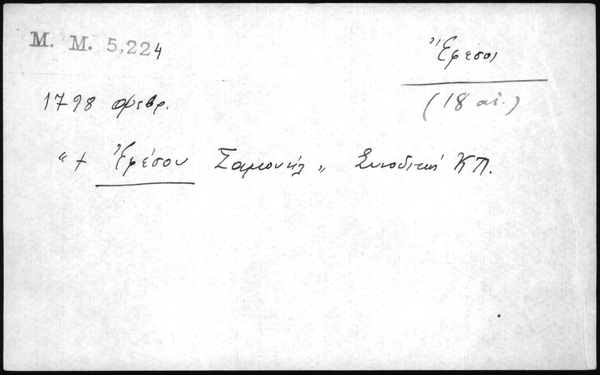 M. M. 5,224
Ἔφεσος
(18 αἰ.)
1798 Φεβρ.
"+ Ἐφέσου Σαμουήλ" Συνοδική ΚΠ.